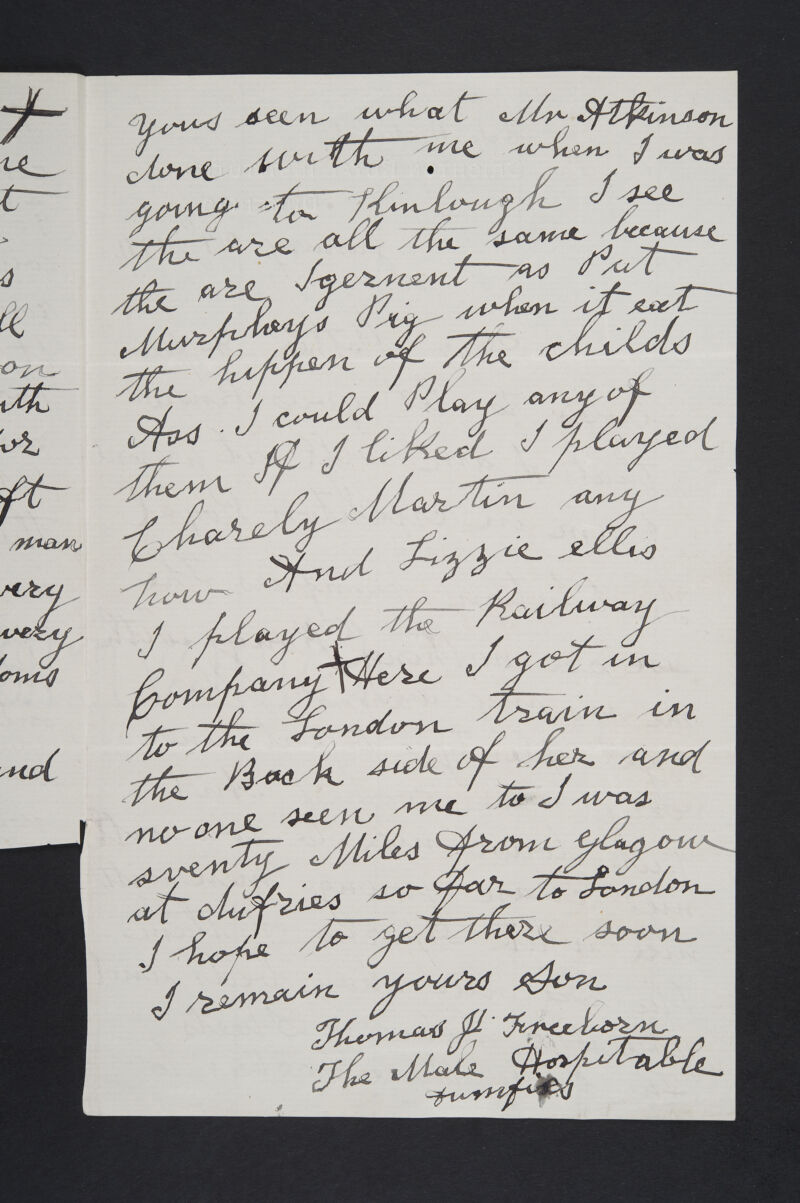 yous seen what Mr Atkinson
done with me when I was
going to Kinlough I see
the are all the same because
the are Igernent as Pat
Murpheys Pig when it eat
the hippen of the childs
Ass. I could Play any of
them If I liked I played
Charely Martin any
how And Lizzie ellis
I played the Railway
Company + Here I got in
to the London train in
the Back side of her and
no one seen me to I was
sventy Miles from glagow
at dufries so far to London
I hope to get there soon
I remain yours Son
Thomas H. Freeborn
The Male Hospitable
Dumfies
ne
t
s
ll
on
ith
or
ft
man
very
very
oms
and